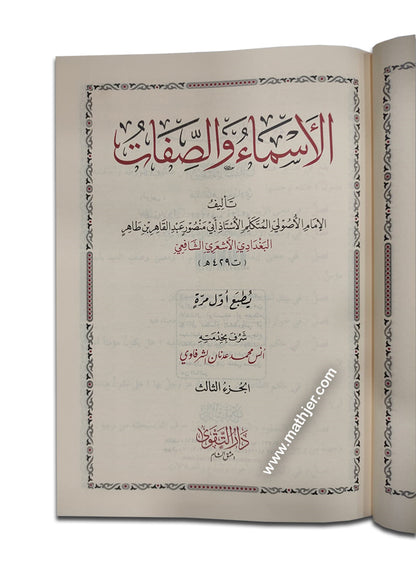 الأسماء والصفات
تأليف
الإمام الأصولي المتكلم الأستاذ أبي منصور عبد القاهر بن طاهر
البغدادي الأشعري الشافعي
(ت ٤٢٩ هـ)
يطبع أول مرة
شرف بخدمته
أنس محمد عدنان الشرفاوي
الجزء الثالث
دار التقوى
دمشق الشام
www.mathjer.com